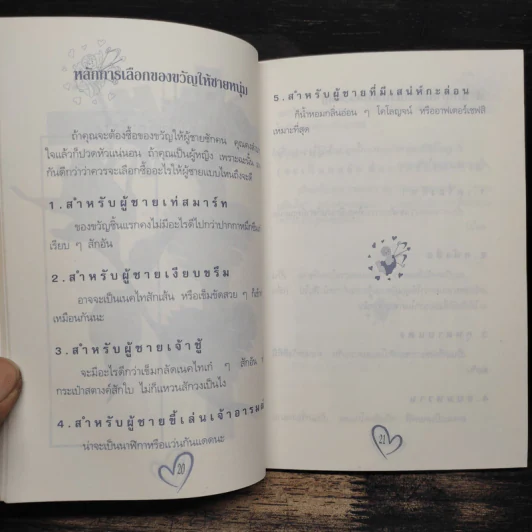 หลักการเลือกของขวัญให้ชายหนุ่ม
ถ้าคุณจะต้องซื้อของขวัญให้ผู้ชายซักคน คุณคง
ใจแล้วก็ปวดหัวแน่นอน ถ้าคุณเป็นผู้หญิง เพราะฉะนั้น
กันดีกว่าว่าควรจะเลือกซื้ออะไรให้ผู้ชายแบบไหนถึงจะดี
1. สำหรับผู้ชายเท่สมาร์ท
ของขวัญชิ้นแรกคงไม่มีอะไรดีไปกว่าปากกาหมึกซึม
เรียบ ๆ สักอัน
2. สำหรับผู้ชายเงียบขรึม
อาจจะเป็นเนคไทสักเส้น หรือเข็มขัดสวย ๆ ก็
เหมือนกันนะ
3. สำหรับผู้ชายเจ้าชู้
จะมีอะไรดีกว่าเข็มกลัดเนคไทเก๋ ๆ สักอัน
กระเป๋าสตางค์สักใบ ไม่ก็แหวนสักวงเป็นไง
4. สำหรับผู้ชายขี้เล่นเจ้าอารมณ์
น่าจะเป็นนาฬิกาหรือแว่นกันแดดนะ
20
5. สำหรับผู้ชายที่มีเสน่ห์กะล่อน
ก็น้ำหอมกลิ่นอ่อน ๆ โคโลญจน์ หรืออาฟเตอร์เชฟสิ
เหมาะที่สุด
21